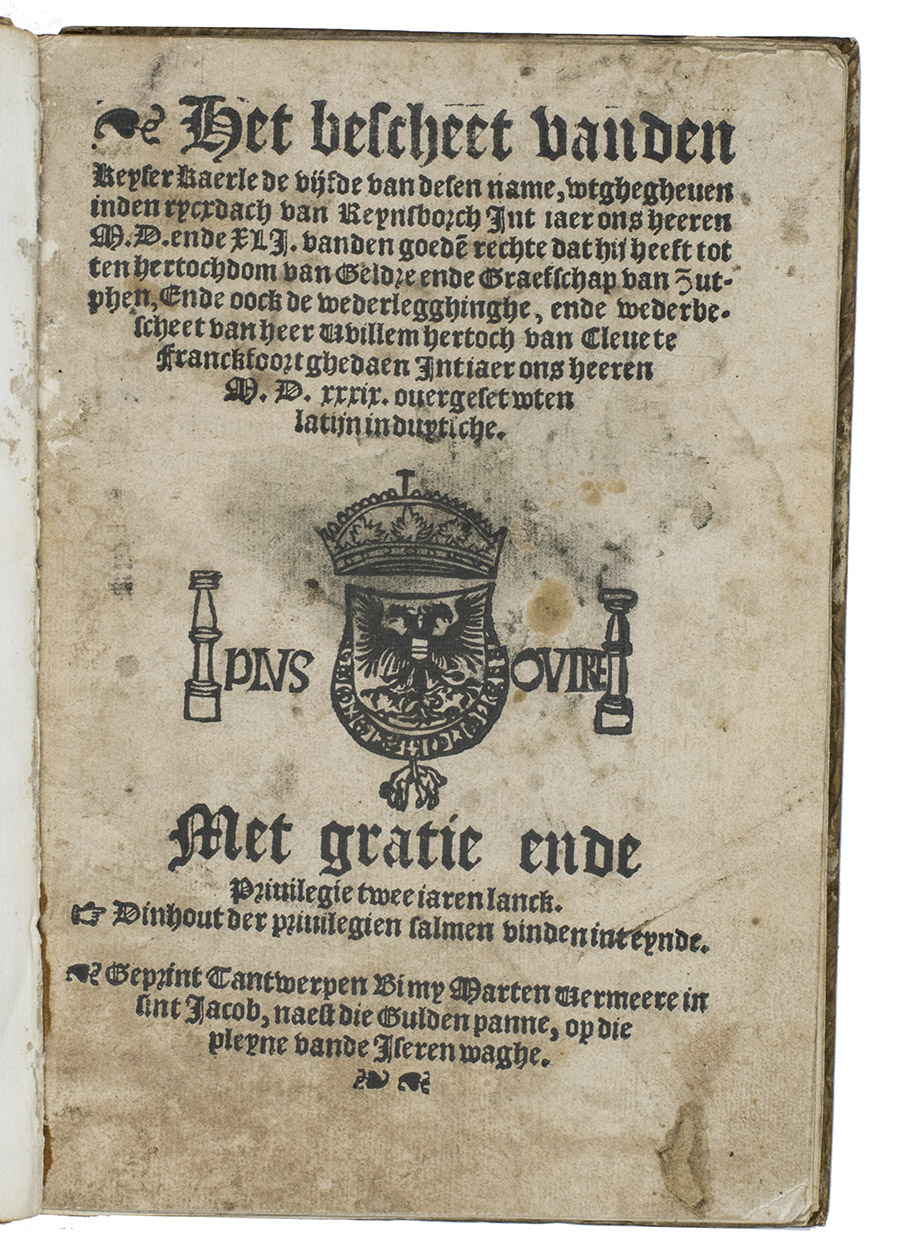 ❧ Het bescheet vanden
Keyser Kaerle de vijfde van desen name, wtghegheuen
inden rycxdach van Reynsborch Int iaer ons heeren
M.D. ende XLJ. vanden goedē rechte dat hij heeft tot
ten hertochdom van Geldre ende Graefschap van Zut-
phen, Ende oock de wederlegghinghe, ende wederbe-
scheet van heer Uvillem hertoch van Cleue te
Franckfoort ghedaen Int iaer ons heeren
M. D. xxxix. ouergeset wten
latijn in duytsche.
PLVS OVTRE
Met gratie ende
Priuilegie twee iaren lanck.
☞ Dinhout der priuilegien salmen vinden int eynde.
❧ Geprint Tantwerpen Bi my Marten Uermeere in
sint Jacob, naest die Gulden panne, op die
pleyne vande Iseren waghe.